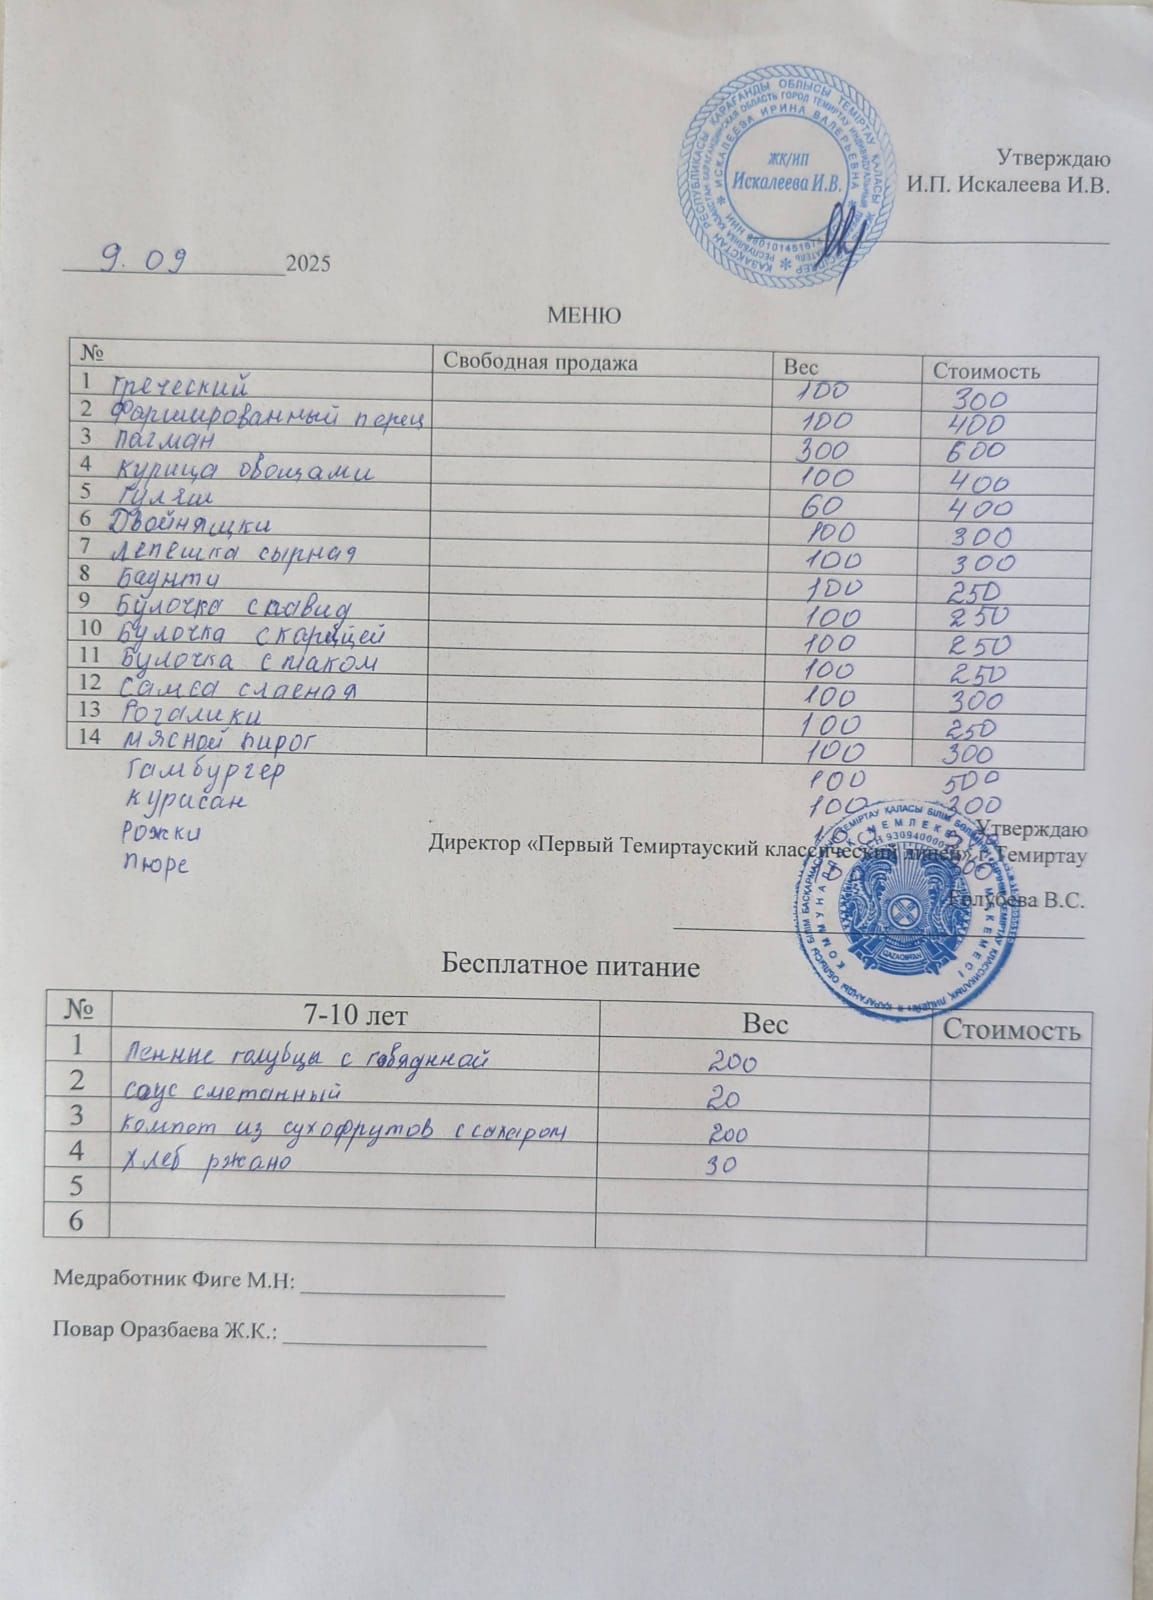 Утверждаю
И.П. Искалеева И.В.
ЖК/ИП
Искалеева И.В.
9.09 2025
МЕНЮ
№ Свободная продажа Вес Стоимость
1 Греческий 100 300
2 Фаршированный перец 100 400
3 Лагман 300 600
4 Курица овощами 100 400
5 Гуляш 60 400
6 Двойняшки 100 300
7 Лепешка сырная 100 300
8 Баунти 100 250
9 Булочка с павид 100 250
10 Булочка с карицей 100 250
11 Булочка с маком 100 250
12 Самса слаеная 100 300
13 Рогалики 100 250
14 Мясной пирог 100 300
Гамбургер 100 500
Курасан 100 200
Рожки
Пюре
Утверждаю
Директор «Первый Темиртауский классический лицей» г. Темиртау
Голубева В.С.
QAZAQSTAN
Бесплатное питание
№ 7-10 лет Вес Стоимость
1 Ленные голубцы с говядиной 200
2 Соус сметанный 20
3 Компот из сухофрутов с сахаром 200
4 Хлеб ржано 30
5
6
Медработник Фиге М.Н:
Повар Оразбаева Ж.К.: